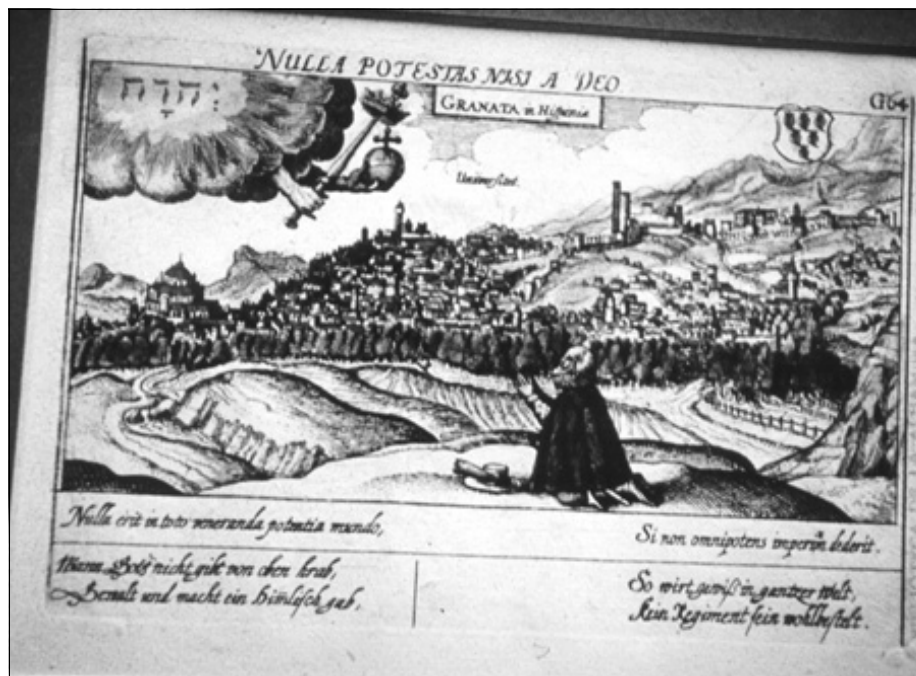 NULLA POTESTAS NISI A DEO
G64
יהוה
GRANATA in Hispania
Nulla erit in toto veneranda potentia mundo,
Si non omnipotens imperiũ dederit.
Wann Gott nicht gibt von oben herab,
Gewalt und macht ein Himlisch gab,
So wirt gewiß in gantzer Welt,
Kein Regiment sein wohlbestelt.